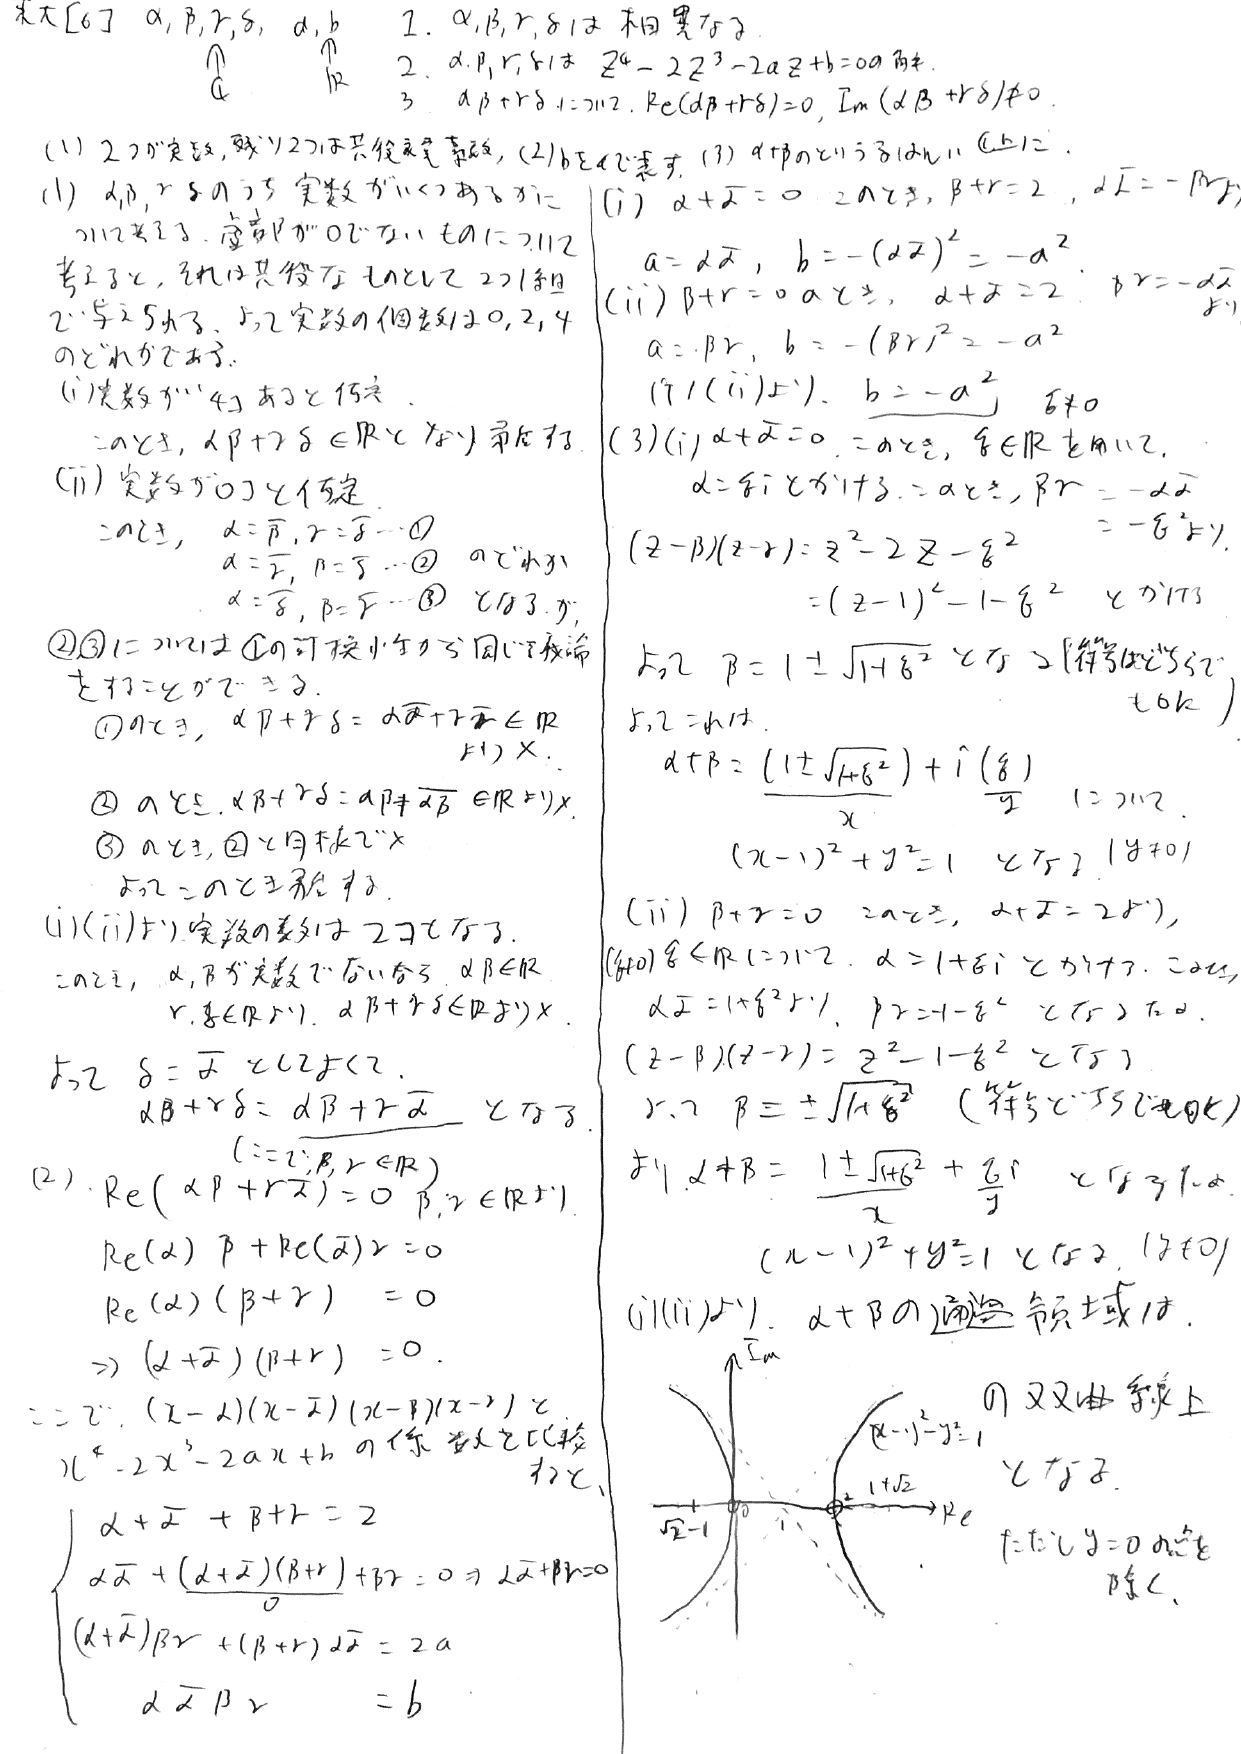 東大[6] α, β, γ, δ, a, b
↑ ℂ ↑ ℝ
1. α, β, γ, δは相異なる.
2. α, β, γ, δは z⁴ - 2z³ - 2az + b = 0の解.
3. αβ+γδについて, Re(αβ+γδ)=0, Im(αβ+γδ)≠0.
(1) 2つが実数, 残り2つは共役複素数, (2) bをaで表す. (3) α+βのとりうるはんい
(1) α, β, γ, δのうち実数がいくつあるかに
ついて考える. 虚部が0でないものについて
考えると, それは共役なものとして2つ1組
で与えられる. よって実数の個数は0, 2, 4
のどれかである.
(i) 実数が4コあると仮定.
このとき, αβ+γδ∈ℝとなり矛盾する.
(ii) 実数が0コと仮定.
このとき, α=β̄, γ=δ̄ … ①
α=γ̄, β=δ̄ … ② のどれか
α=δ̄, β=γ̄ … ③ となるが,
②③については①の対換 から同じ議論
をすることができる.
①のとき, αβ+γδ = αᾱ+γγ̄∈ℝ
より×.
②のとき, αβ+γδ=αβ+ᾱβ̄ ∈ℝより×.
③のとき, ②と同様で×
よってこのとき矛盾する.
(i)(ii)より, 実数の数は2コとなる.
このとき, α, βが実数でないなら αβ∈ℝ
γ, δ∈ℝより, αβ+γδ∈ℝより×.
よって δ=ᾱ としてよくて,
αβ+γδ= αβ+γᾱ となる.
(ここで, β, γ∈ℝ)
(2). Re(αβ+γᾱ)=0 β, γ∈ℝより
Re(α)β+Re(ᾱ)γ=0
Re(α)(β+γ) =0
⇒ (α+ᾱ)(β+γ) =0.
ここで, (x-α)(x-ᾱ)(x-β)(x-γ)と
x⁴-2x³-2ax+bの係数を比較
すると、
α+ᾱ+β+γ=2
αᾱ+(α+ᾱ)(β+γ)+βγ=0 ⇒ αᾱ+βγ=0
0
(α+ᾱ)βγ+(β+γ)αᾱ=2a
αᾱβγ =b
(i) α+ᾱ=0 このとき, β+γ=2, αᾱ=-βγより
a=αᾱ, b=-(αᾱ)²=-a².
(ii) β+γ=0のとき, α+ᾱ=2. βγ=-αᾱより,
a=βγ, b=-(βγ)²=-a²
(i)(ii)より, b=-a²
(3)(i) α+ᾱ=0 このとき, ξ∈ℝを用いて, ξ≠0
α=ξiとかける. このとき, βγ=-αᾱ
=-ξ²より,
(z-β)(z-γ)=z²-2z-ξ²
=(z-1)²-1-ξ² とかける
よって β=1±√1+ξ² となる (符号はどちらで
もok)
よってこれは.
α+β=(1±√1+ξ²)+i(ξ) について.
x y
(x-1)²+y²=1 となる (y≠0)
(ii) β+γ=0 このとき, α+ᾱ=2より,
(ξ≠0) ξ∈ℝについて. α=1+ξiとかける. このとき,
αᾱ=1+ξ²より, βγ=-1-ξ² となるため.
(z-β)(z-γ)=z²-1-ξ²となる
よって β=±√1+ξ² (符号どちらでもok)
より, α+β=1±√1+ξ²+ξi となるため.
x y
(x-1)²+y²=1となる. (y≠0)
(i)(ii)より, α+βの 領域は.
Im
(x-1)²-y²=1
の双曲線上
となる.
√2-1 0 1 2 1+√2 Re
ただしy=0の点を
除く.